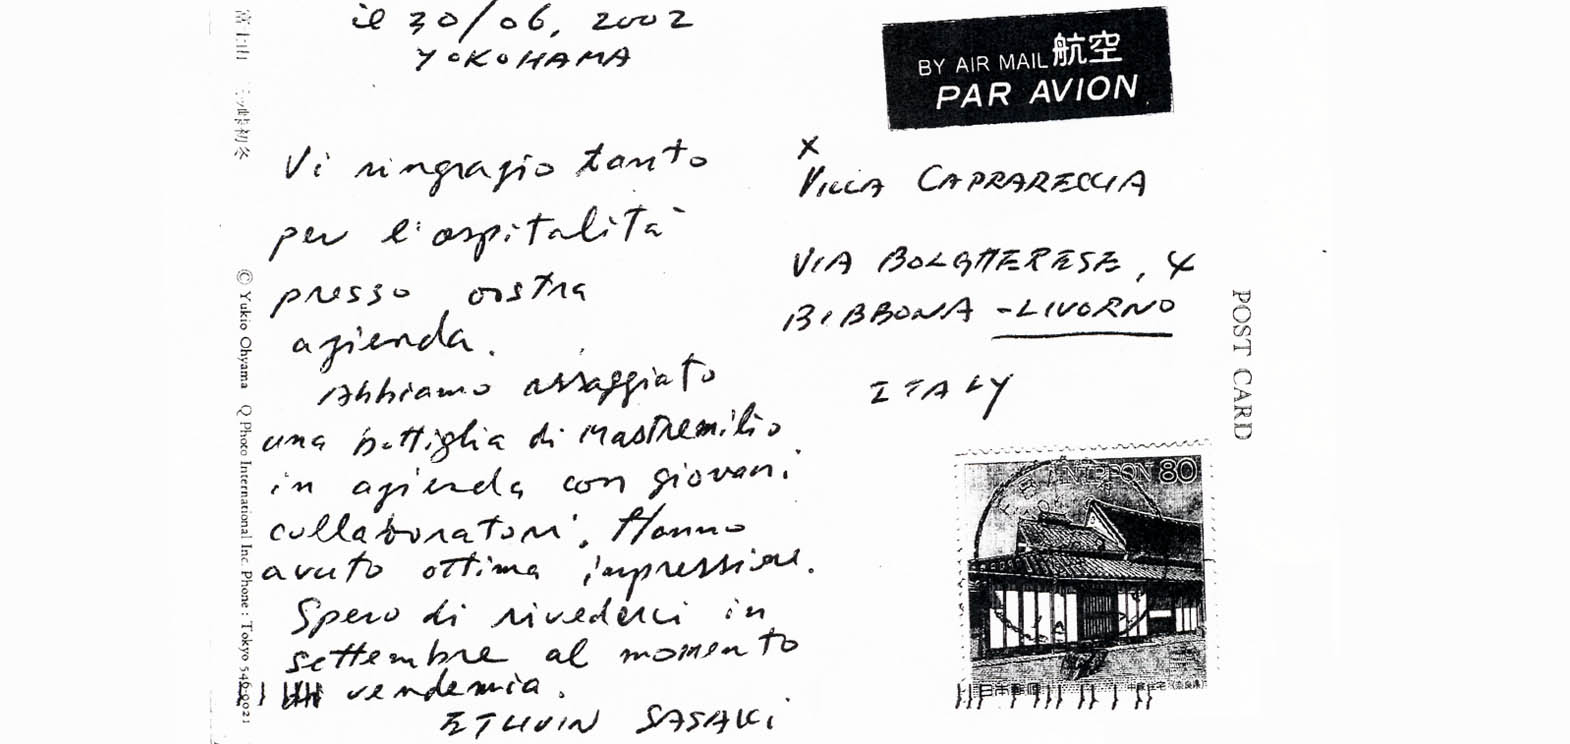 il 30/06, 2002
YOKOHAMA
Vi ringrazio tanto
per l'ospitalità
presso vostra
azienda.
Abbiamo assaggiato
una bottiglia di Mastremilio
in azienda con giovani
collaboratori. Hanno
avuto ottima impressione.
Spero di rivederci in
settembre al momento
vendemia.
SASAKI
BY AIR MAIL 航空
PAR AVION
x
VILLA CAPRARECCIA
VIA BOLGHERESE, 4
BIBBONA - LIVORNO
ITALY
POST CARD
NIPPON 80
日本郵便
© Yukio Ohyama Q Photo International Inc. Phone : Tokyo